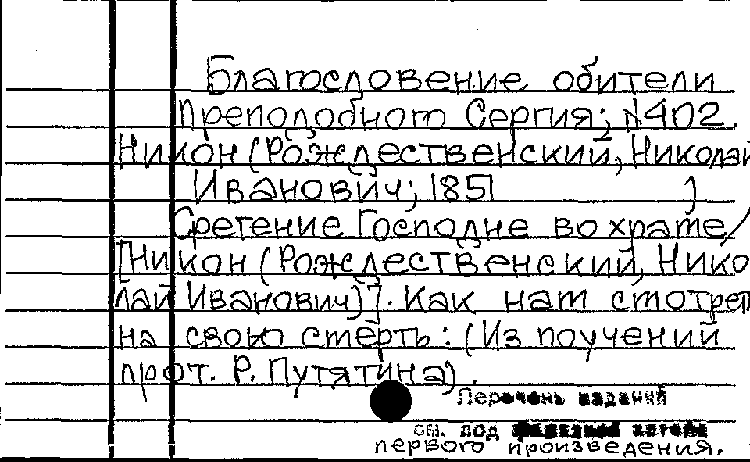 Благословение обители
Преподобного Сергия; №402.
Никон (Рождественский, Николай
Иванович; 1851
Сретение Господне во храме/
[Никон (Рождественский, Нико
лай Иванович)]. Как нам смотреть
на свою смерть: (Из поучений
прот. Р. Путятина).
Перечень изданий
см. под
первого произведения.